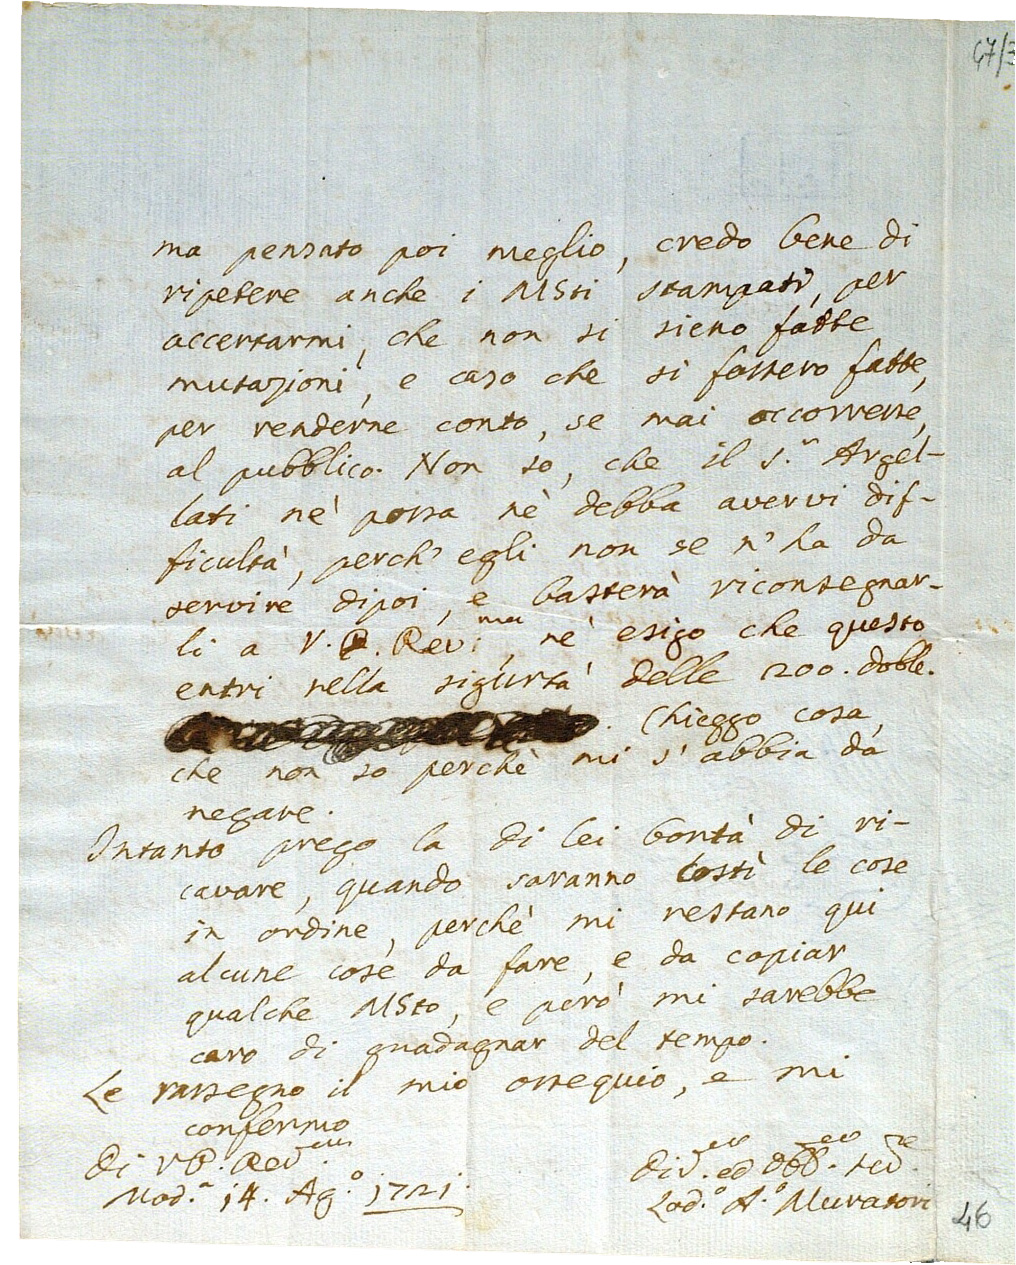 47/3
ma pensato poi meglio, credo bene di
ripetere anche i MSti stampati, per
accertarmi, che non si sieno fatte
mutazioni, e caso che si fossero fatte,
per renderne conto, se mai occorresse,
al pubblico. Non so, che il S.r Argel-
lati nè possa nè debba avervi dif-
ficultà, perch' egli non se n'ha da
servire dipoi, e basterà riconsegnar-
li a V. P. Rev.ma, nè esigo che questo
entri nella sigurtà delle 1200. doble.
. Chieggo cosa,
che non so perchè mi s'abbia da
negare.
Intanto prego la di lei bontà di ri-
cavare, quando saranno costì le cose
in ordine, perchè mi restano qui
alcune cose da fare, e da copiar
qualche MSto, e però mi sarebbe
caro di guadagnar del tempo.
Le rassegno il mio ossequio, e mi
confermo
di V.P. Rev.ma
Mod.a 14. Ag.o 1721.
Div.mo ed Obb.mo ser.re
Lod.o A.o Muratori
46